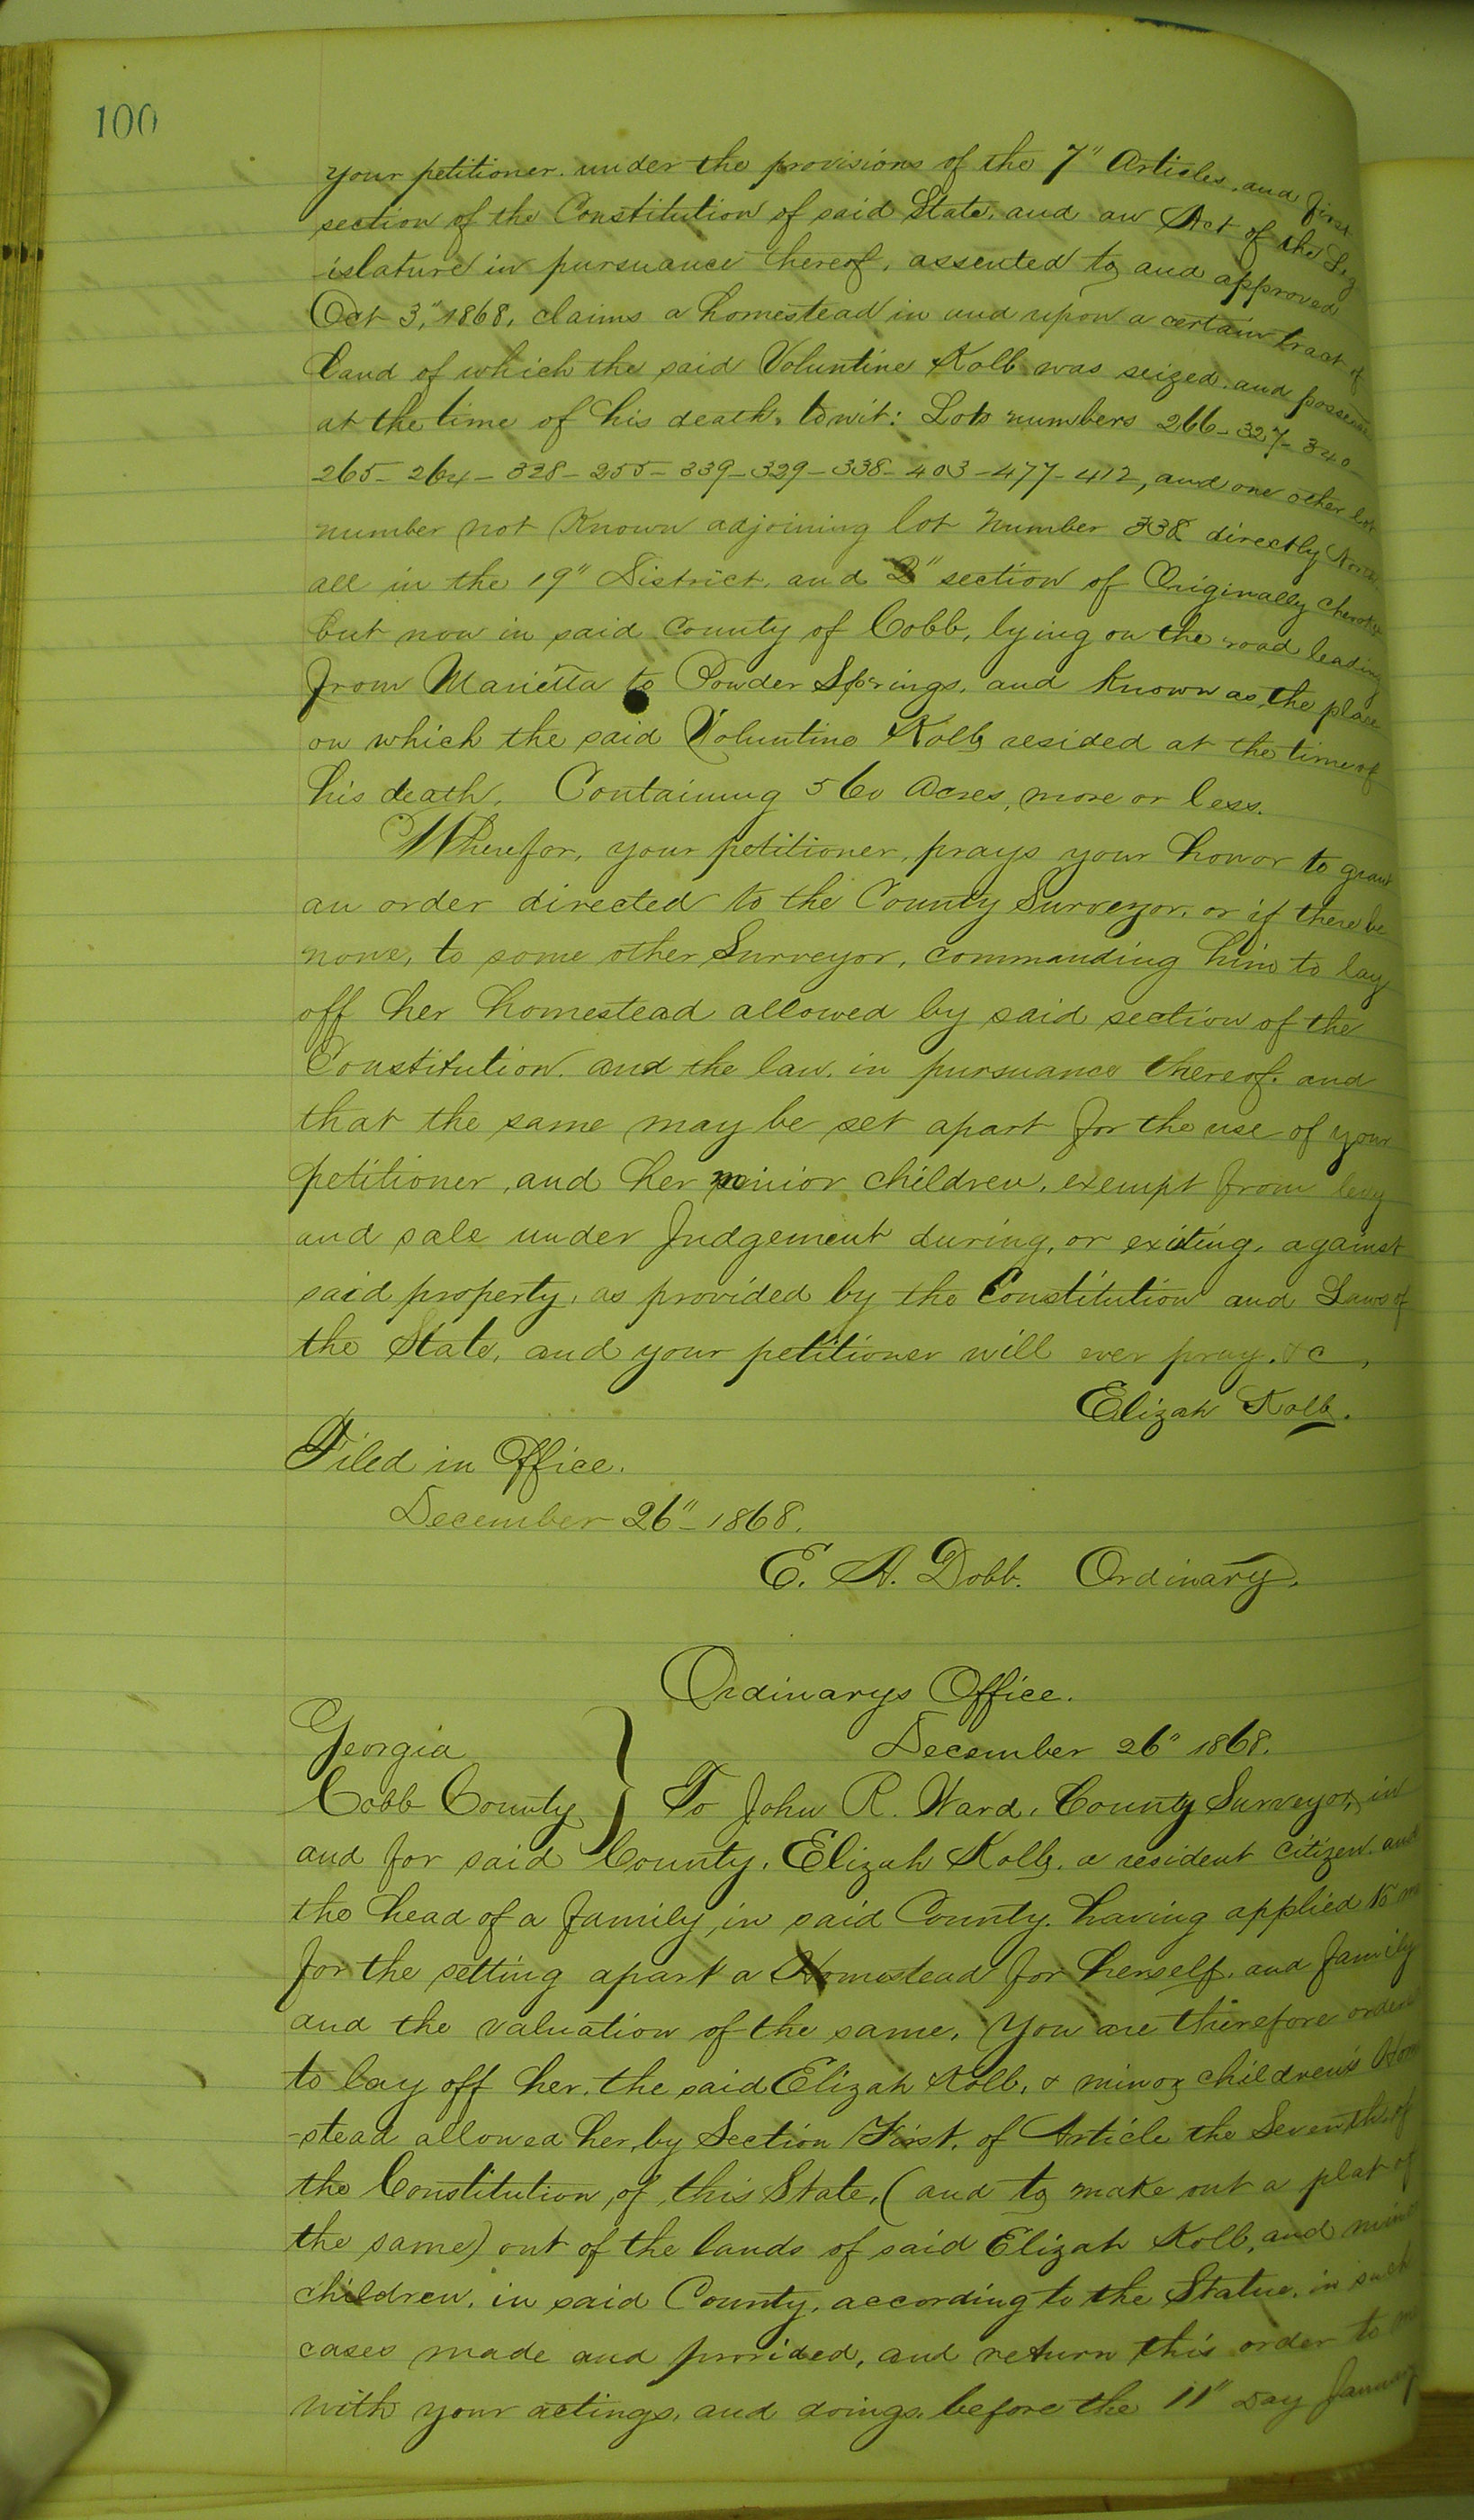 100
your petitioner. under the provisions of the 7" Articles, and first
section of the Constitution of said State, and an Act of the Leg
-islature in pursuance hereof, assented to and approved
Oct 3," 1868, claims a homestead in and upon a certain tract of
Land of which the said Voluntine Kolb was seized, and possessed
at the time of his death, to wit: Lots numbers 266-327-340-
265-264-328-255-339-329-338-403-477-412, and one other lot
number not Known adjoining lot number 338 directly North
all in the 19" District, and 2" section of Originally Cherokee
but now in said County of Cobb, lying on the road leading
from Marietta to Powder Springs, and Known as the place
on which the said Voluntine Kolb resided at the time of
his death. Containing 560 Acres, more or less.
Wherefor, your petitioner, prays your honor to grant
an order directed to the County Surveyor, or if there be
none, to some other Surveyor, commanding him to lay
off her homestead allowed by said section of the
Constitution. and the law. in pursuance thereof. and
that the same may be set apart for the use of your
petitioner, and her minior children, exempt from levy
and sale under Judgement during, or exiting, against
said property, as provided by the Constitution and Laws of
the State, and your petitioner will ever pray, &c,
Elizah Kolb.
Filed in Office.
December 26"- 1868.
E. A. Dobb. Ordinary.
Ordinarys Office.
Georgia
December 26" 1868.
Cobb County } To John R. Ward, County Surveyor, in
and for said County. Elizah Kolb, a resident citizen and
the head of a family, in said County. having applied to me
for the setting apart a Homestead for herself, and family
and the valuation of the same, You are therefore ordered
to lay off her, the said Elizah Kolb, & minor children's Hom
-stead allowed her, by Section First, of Article the Seventh of
the Constitution, of this State, (and to make out a plat of
the same) out of the lands of said Elizah Kolb, and minor
children, in said County, according to the Statue, in such
cases made and provided, and return this order to me
with your actings, and doings, before the 11" Day January